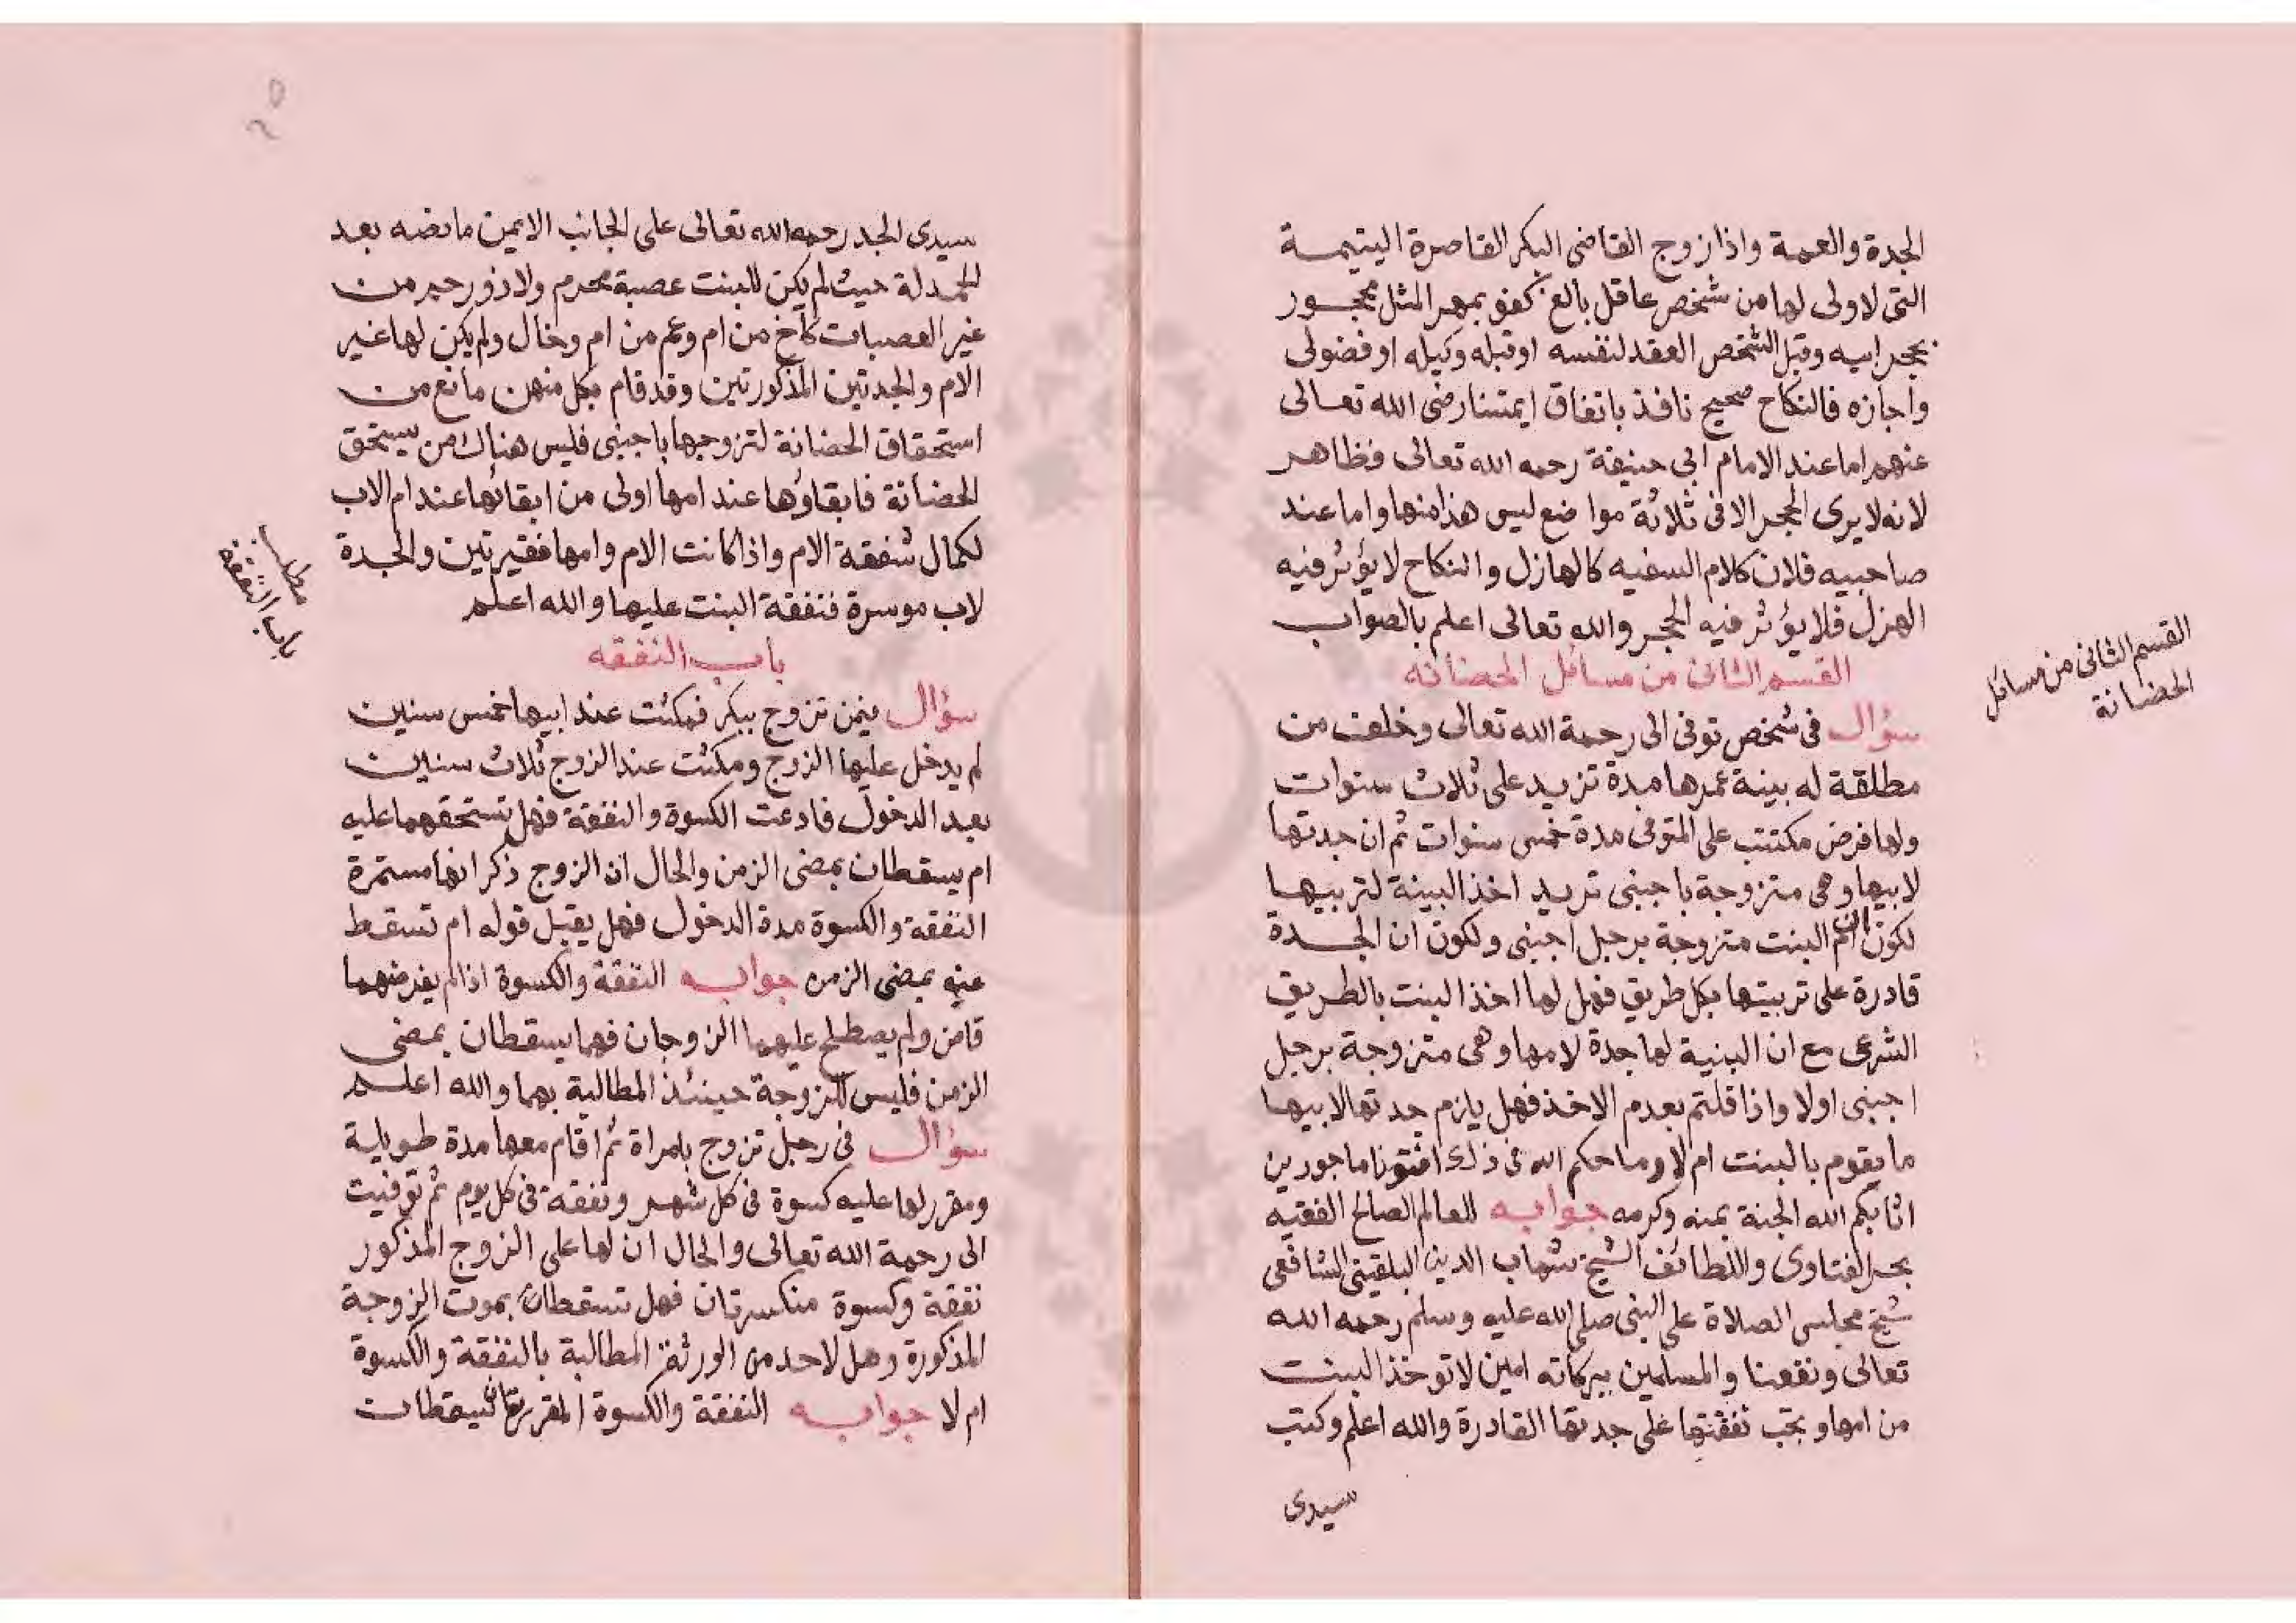 الجدة والعمة واذا زوج القاضى البكر القاصرة اليتيمة
التى لاولى لها من شخص عاقل بالغ كفؤ بمهر المثل محجور
بحجر ابيه وقبل الشخص العقد لنفسه او قبله وكيله او فضولى
واجازه فالنكاح صحيح نافذ باتفاق ايمتنا رضى الله تعالى
عنهم اما عند الامام ابى حنيفة رحمه الله تعالى فظاهر
لانه لا يرى الحجر الا فى ثلاثة مواضع ليس هذا منها واما عند
صاحبيه فلان كلام السفيه كالهازل والنكاح لا يؤثر فيه
الهزل فلا يؤثر فيه الحجر والله تعالى اعلم بالصواب
القسم الثانى من مسائل الحضانه
القسم الثانى من مسائل
الحضانة
سؤال فى شخص توفى الى رحمة الله تعالى وخلف من
مطلقة له بينة عمرها مدة تزيد على ثلاث سنوات
ولها فرض مكتتب على المتوفى مدة خمس سنوات ثم ان جدتها
لابيها وهى متزوجة باجنبى تريد اخذ البينة لتربيها
لكون ان ام البنت متزوجة برجل اجنبى ولكون ان الجدة
قادرة على تربيتها بكل طريق فهل لها اخذ البنت بالطريق
الشرعى مع ان البنية لها جدة لامها وهى متزوجة برجل
اجنبى اولا واذا قلتم بعدم الاخذ فهل يلزم جدتها لابيها
ما يقوم بالبنت ام لا وما حكم الله فى ذلك افتونا ماجورين
اثابكم الله الجنة بمنه وكرمه جوابه للعالم الصالح الفقيه
بحر الفتاوى واللطائف الشيخ شهاب الدين البلقينى الشافعى
شيخ مجلس الصلاة على النبى صلى الله عليه وسلم رحمه الله
تعالى ونفعنا والمسلمين ببركاته امين لا تؤخذ البنت
من امها وتجب نفقتها على جدتها القادرة والله اعلم وكتب
سيدى
سيدى الجد رحمه الله تعالى على الجانب الايمن ما نصه بعد
الحمدلة حيث لم يكن للبنت عصبة محرم ولا ذو رحم من
غير العصبات كأخ من ام وعم من ام وخال ولم يكن لها غير
الام والجدتين المذكورتين وقد قام بكل منهن مانع من
استحقاق الحضانة لتزوجها باجنبى فليس هناك من يستحق
الحضانة فابقاؤها عند امها اولى من ابقائها عند ام الاب
لكمال شفقة الام واذا كانت الام وامها فقيرتين والجدة
لاب موسرة فنفقة البنت عليها والله اعلم
باب النفقه
مطلب
باب النفقة
سؤال فيمن تزوج ببكر فمكثت عند ابيها خمس سنين
لم يدخل عليها الزوج ومكثت عند الزوج ثلاث سنين
بعد الدخول فادعت الكسوة والنفقة فهل تستحقهما عليه
ام يسقطان بمضى الزمن والحال ان الزوج ذكر انها مستمرة
النفقة والكسوة مدة الدخول فهل يقبل قوله ام تسقط
عنه بمضى الزمن جوابه النفقة والكسوة اذا لم يفرضهما
قاض ولم يصطلح عليهما الزوجان فهما يسقطان بمضى
الزمن فليس للزوجة حينئذ المطالبة بهما والله اعلم
سؤال فى رجل تزوج بامراة ثم اقام معها مدة طويلة
ومقرر لها عليه كسوة فى كل شهر ونفقة فى كل يوم ثم توفيت
الى رحمة الله تعالى والحال ان لها على الزوج المذكور
نفقة وكسوة منكسرتان فهل تسقطان بموت الزوجة
المذكورة وهل لاحد من الورثة المطالبة بالنفقة والكسوة
ام لا جوابه النفقة والكسوة المقررتان تسقطان